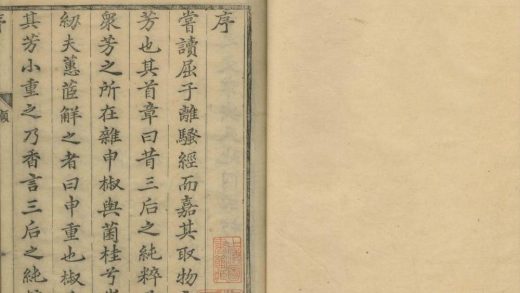 序
嘗讀屈子離騷經而嘉其取物
芳也其首章曰昔三后之純粹
衆芳之所在雜申椒與菌桂兮
紉夫蕙茞解之者曰申重也椒
其芳小重之乃香言三后之純
序